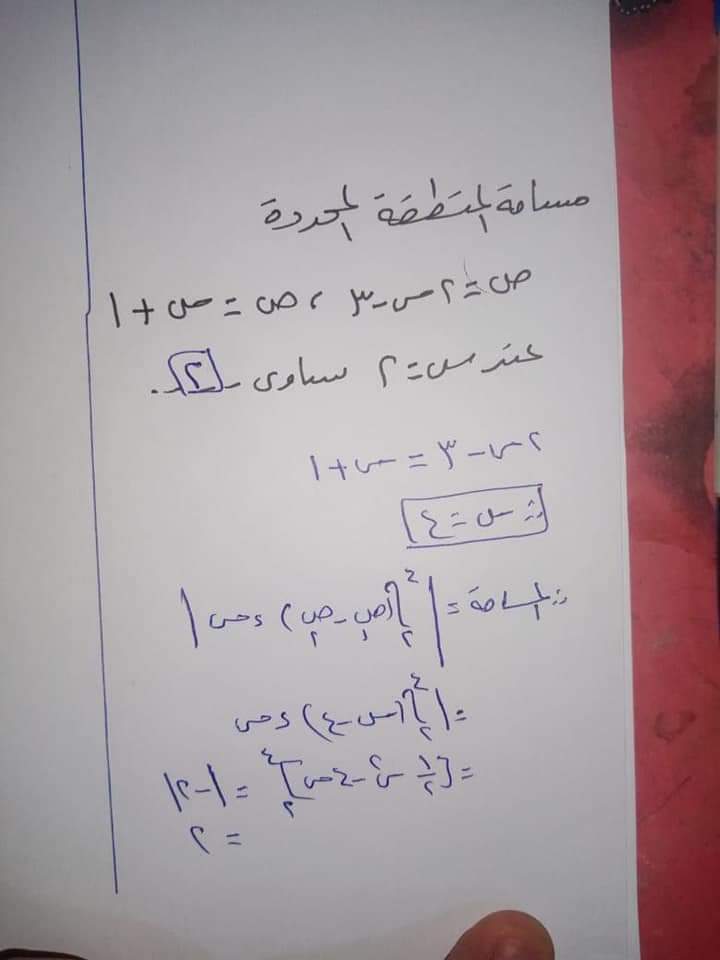 مساحة المنطقة المحددة
ص = ٢س - ٣ ، ص = س + ١
عند س = ٢ تساوى - ٢ - .
٢س - ٣ = س + ١
∴ س = ٤
∴ المساحة = | ∫٢^٤ (ص١ - ص٢) ءس |
= | ∫٢^٤ (س - ٤) ءس
= [ ١/٢ س^٢ - ٤س ]٢^٤ = | -٢ |
= ٢